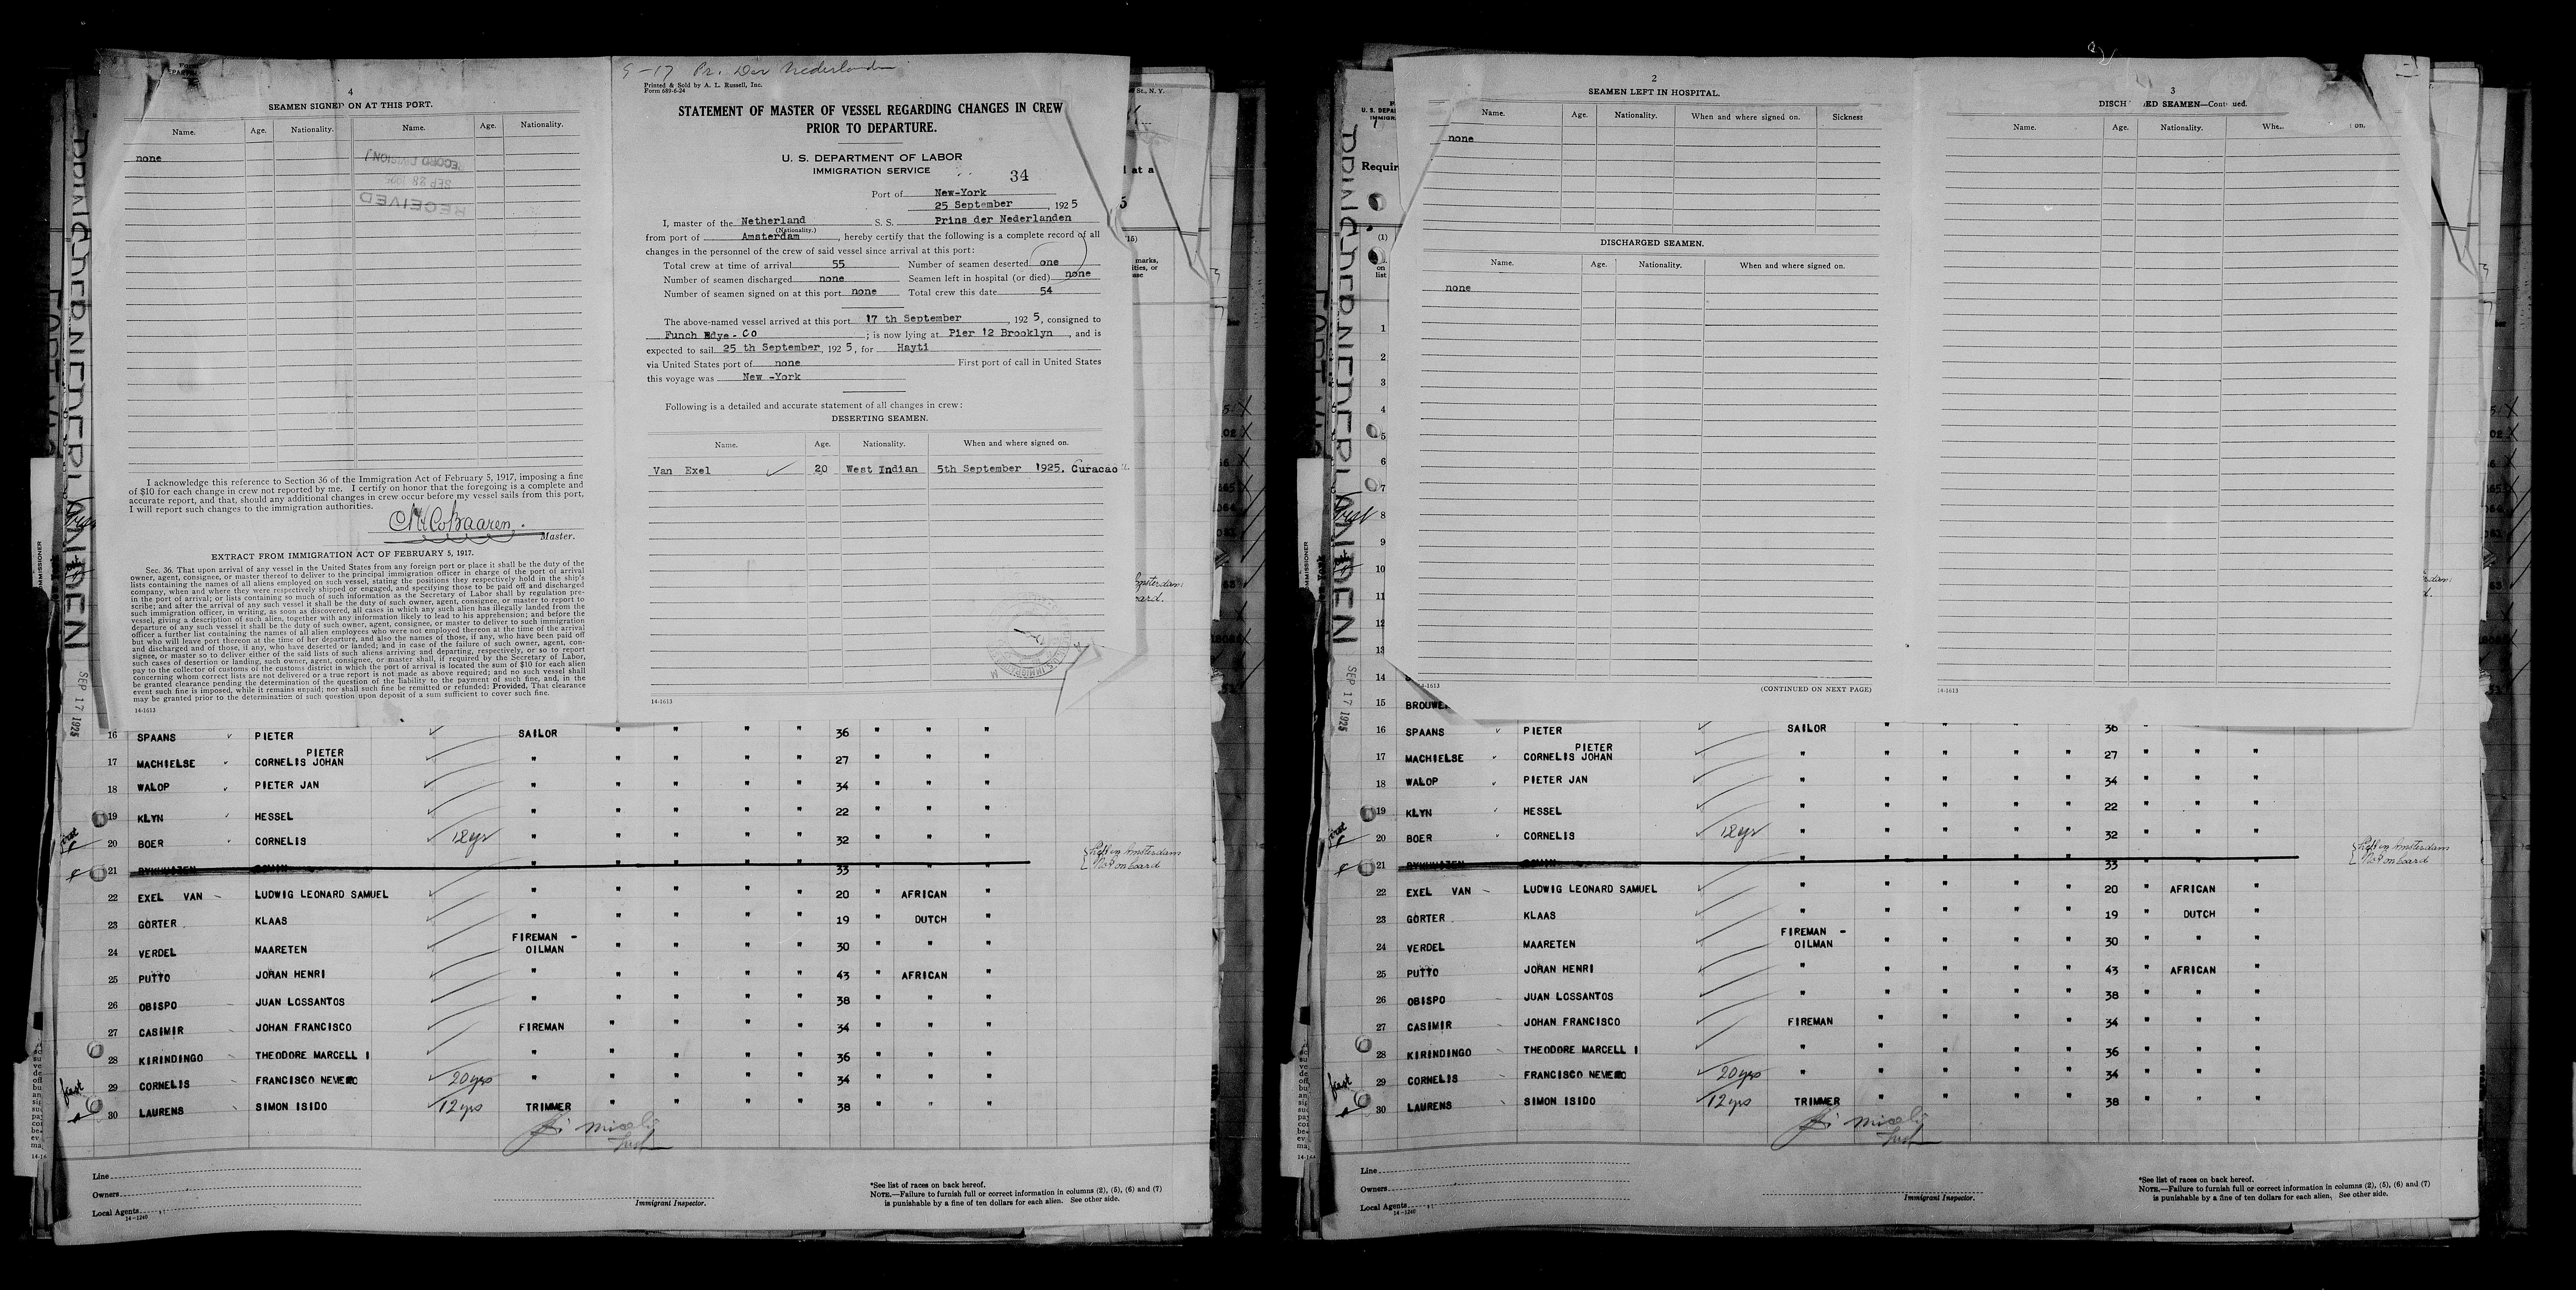 4
SEAMEN SIGNED ON AT THIS PORT.
Name. Age. Nationality. Name. Age. Nationality.
none
RECORD DIVISION
SEP 28
RECEIVED
I acknowledge this reference to Section 36 of the Immigration Act of February 5, 1917, imposing a fine
of $10 for each change in crew not reported by me. I certify on honor that the foregoing is a complete and
accurate report, and that, should any additional changes in crew occur before my vessel sails from this port,
I will report such changes to the immigration authorities.
Master.
EXTRACT FROM IMMIGRATION ACT OF FEBRUARY 5, 1917.
Sec. 36. That upon arrival of any vessel in the United States from any foreign port or place it shall be the duty of the
owner, agent, consignee, or master thereof to deliver to the principal immigration officer in charge of the port of arrival
lists containing the names of all aliens employed on such vessel, stating the positions they respectively hold in the ship's
company, when and where they were respectively shipped or engaged, and specifying those to be paid off and discharged
in the port of arrival; or lists containing so much of such information as the Secretary of Labor shall by regulation pre-
scribe; and after the arrival of any such vessel it shall be the duty of such owner, agent, consignee, or master to report to
such immigration officer, in writing, as soon as discovered, all cases in which any such alien has illegally landed from the
vessel, giving a description of such alien, together with any information likely to lead to his apprehension; and before the
departure of any such vessel it shall be the duty of such owner, agent, consignee, or master to deliver to such immigration
officer a further list containing the names of all alien employees who were not employed thereon at the time of the arrival
but who will leave port thereon at the time of her departure, and also the names of those, if any, who have been paid off
and discharged and of those, if any, who have deserted or landed; and in case of the failure of such owner, agent, con-
signee, or master so to deliver either of the said lists of such aliens arriving and departing, respectively, or so to report
such cases of desertion or landing, such owner, agent, consignee, or master shall, if required by the Secretary of Labor,
pay to the collector of customs of the customs district in which the port of arrival is located the sum of $10 for each alien
concerning whom correct lists are not delivered or a true report is not made as above required; and no such vessel shall
be granted clearance pending the determination of the question of the liability to the payment of such fine, and, in the
event such fine is imposed, while it remains unpaid; nor shall such fine be remitted or refunded: Provided, That clearance
may be granted prior to the determination of such question upon deposit of a sum sufficient to cover such fine.
14-1613
9-17 Pr. Der Nederlanden
Printed & Sold by A. L. Russell, Inc.
Form 689-6-24
STATEMENT OF MASTER OF VESSEL REGARDING CHANGES IN CREW
PRIOR TO DEPARTURE.
U. S. DEPARTMENT OF LABOR
IMMIGRATION SERVICE
34
Port of New-York
25 September, 1925
I, master of the Netherland S. S. Prins der Nederlanden
(Nationality.)
from port of Amsterdam, hereby certify that the following is a complete record of all
changes in the personnel of the crew of said vessel since arrival at this port:
Total crew at time of arrival 55 Number of seamen deserted one
Number of seamen discharged none Seamen left in hospital (or died) none
Number of seamen signed on at this port none Total crew this date 54
The above-named vessel arrived at this port 17 th September, 1925, consigned to
Funch Edye - Co; is now lying at Pier 12 Brooklyn, and is
expected to sail 25 th September, 1925, for Hayti
via United States port of none First port of call in United States
this voyage was New -York
Following is a detailed and accurate statement of all changes in crew:
DESERTING SEAMEN.
Name. Age. Nationality. When and where signed on.
Van Exel 20 West Indian 5th September 1925. Curacao
14-1613
SEP 17 1925
16 SPAANS PIETER SAILOR " " " " 36 " " "
PIETER
17 MACHIELSE CORNELIS JOHAN " " " " " 27 " " "
18 WALOP PIETER JAN " " " " " 34 " " "
19 KLYN HESSEL " " " " " 22 " " "
20 BOER CORNELIS 12yr " " " " " 32 " " "
21 " " " " " 33 Left in Amsterdam
Not on board
22 EXEL VAN LUDWIG LEONARD SAMUEL " " " " " 20 " AFRICAN "
23 GORTER KLAAS " " " " " 19 " DUTCH "
FIREMAN -
24 VERDEL MAARETEN OILMAN " " " " 30 " " "
25 PUTTO JOHAN HENRI " " " " " 43 " AFRICAN "
26 OBISPO JUAN LOSSANTOS " " " " " 38 " " "
27 CASIMIR JOHAN FRANCISCO FIREMAN " " " " 34 " " "
28 KIRINDINGO THEODORE MARCELL I " " " " " 36 " " "
29 CORNELIS FRANCISCO NEVERO 20yrs " " " " " 34 " " "
30 LAURENS SIMON ISIDO 12yrs TRIMMER " " " " 38 " " "
Line
Owners
Local Agents
14-1240
Immigrant Inspector.
*See list of races on back hereof.
NOTE.—Failure to furnish full or correct information in columns (2), (5), (6) and (7)
is punishable by a fine of ten dollars for each alien. See other side.
2
SEAMEN LEFT IN HOSPITAL.
Name. Age. Nationality. When and where signed on. Sickness
none
DISCHARGED SEAMEN.
Name. Age. Nationality. When and where signed on.
none
14-1613
(CONTINUED ON NEXT PAGE)
3
Name. Age. Nationality.
14-1613
1
2
3
4
5
6
7
8
9
10
11
12
13
14
SEP 17 1925
15 BROUWE
16 SPAANS PIETER SAILOR " " " " 36 " " "
PIETER
17 MACHIELSE CORNELIS JOHAN " " " " " 27 " " "
18 WALOP PIETER JAN " " " " " 34 " " "
19 KLYN HESSEL " " " " " 22 " " "
20 BOER CORNELIS 12yr " " " " " 32 " " "
21 " " " " " 33 Left in Amsterdam
Not on board
22 EXEL VAN LUDWIG LEONARD SAMUEL " " " " " 20 " AFRICAN "
23 GORTER KLAAS " " " " " 19 " DUTCH "
FIREMAN -
24 VERDEL MAARETEN OILMAN " " " " 30 " " "
25 PUTTO JOHAN HENRI " " " " " 43 " AFRICAN "
26 OBISPO JUAN LOSSANTOS " " " " " 38 " " "
27 CASIMIR JOHAN FRANCISCO FIREMAN " " " " 34 " " "
28 KIRINDINGO THEODORE MARCELL I " " " " " 36 " " "
29 CORNELIS FRANCISCO NEVERO 20yrs " " " " " 34 " " "
30 LAURENS SIMON ISIDO 12yrs TRIMMER " " " " 38 " " "
Line
Owners
Local Agents
14-1240
Immigrant Inspector.
*See list of races on back hereof.
NOTE.—Failure to furnish full or correct information in columns (2), (5), (6) and (7)
is punishable by a fine of ten dollars for each alien. See other side.